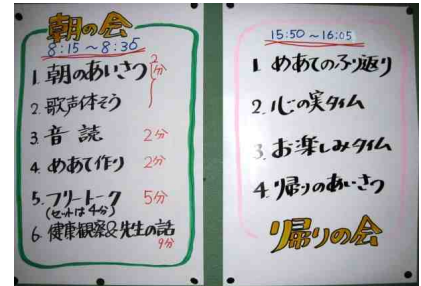 朝の会
8:15～8:35
1. 朝のあいさつ 2分
2. 歌声体そう
3. 音読 2分
4. めあて作り 2分
5. フリートーク 5分
(セットは4分)
6. 健康観察&先生の話
9分
15:50～16:05
1. めあてのふり返り
2. 心の実タイム
3. お楽しみタイム
4. 帰りのあいさつ
帰りの会